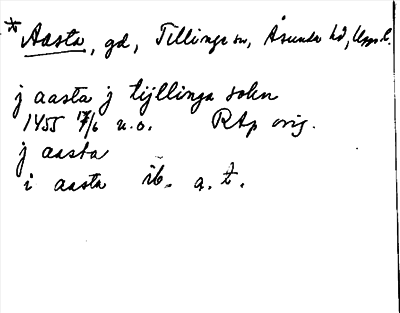 * Aasta, gd, Tillinge sn, Åsunda hd, Uppl.
j aasta j tijllinga sokn
1455 17/6 u.o. RAp orig.
j aasta
i aasta ib. a.t.